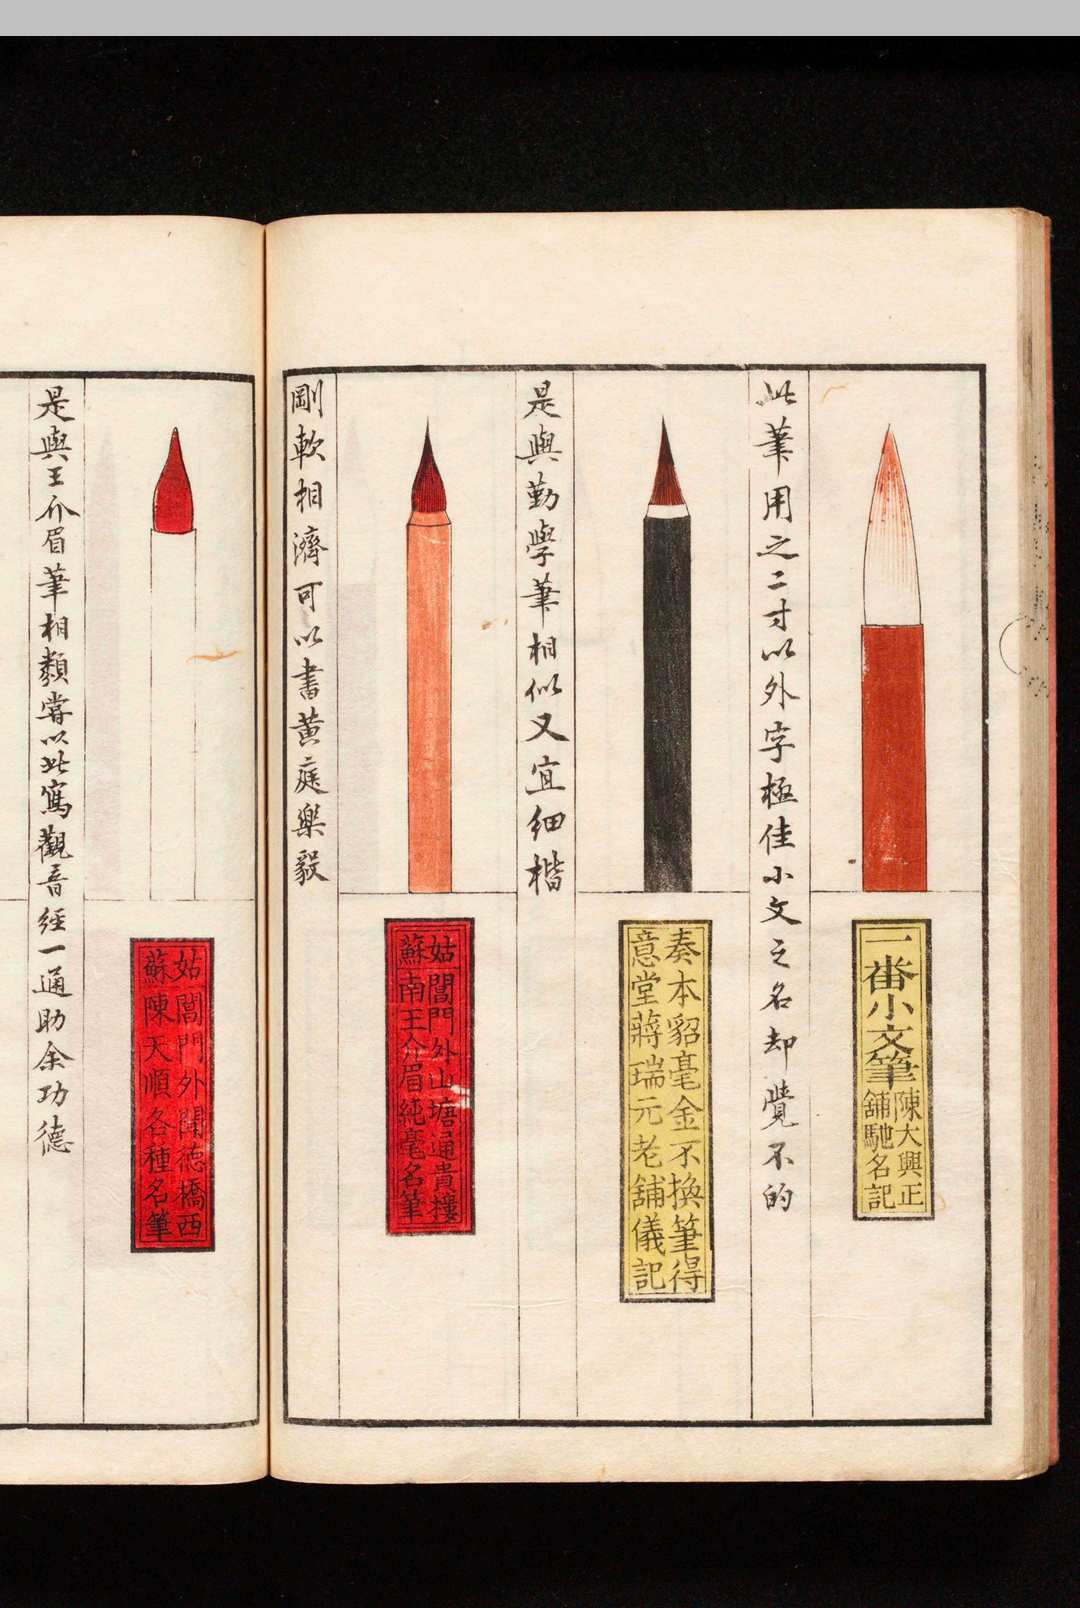 一番小文筆
陳大興正
舖馳名記
此筆用之二寸以外字極佳小文之名却覺不的
奏本貂毫金不換筆得
意堂蔣瑞元老舖儀記
是與勤學筆相似又宜細楷
姑閶門外山塘通貴樓
蘇南王介眉純毫名筆
剛軟相濟可以書黃庭樂毅
姑閶門外聞德橋西
蘇陳天順各種名筆
是與王介眉筆相類嘗以此寫觀音經一通助余功德